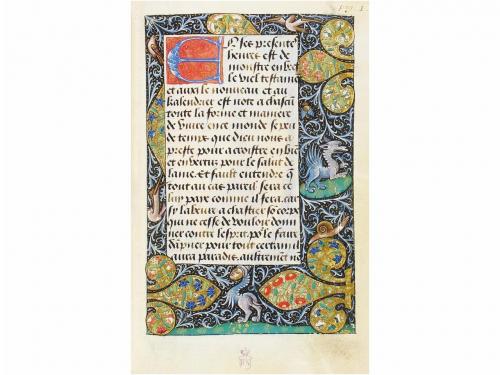 En ses presentes
heures est de
monstre en brief
le viel testame
et aussi le nouveau et au
kalendrier est note a chascun
toute la forme et maniere
de vivre en ce monde se peu
de temps que dieu nous a
preste pour accroistre en bie
et en vertus pour le salut de
lame. Et fault entendre q
tout au cas pareil sera ce
luy pare comme il sera. car
sy labeur a chastier so corps
qui ne cesse de vouloir dom
ner contre lesprit. po le faux
dapner pour tout certain
aura paradis. autrement ne